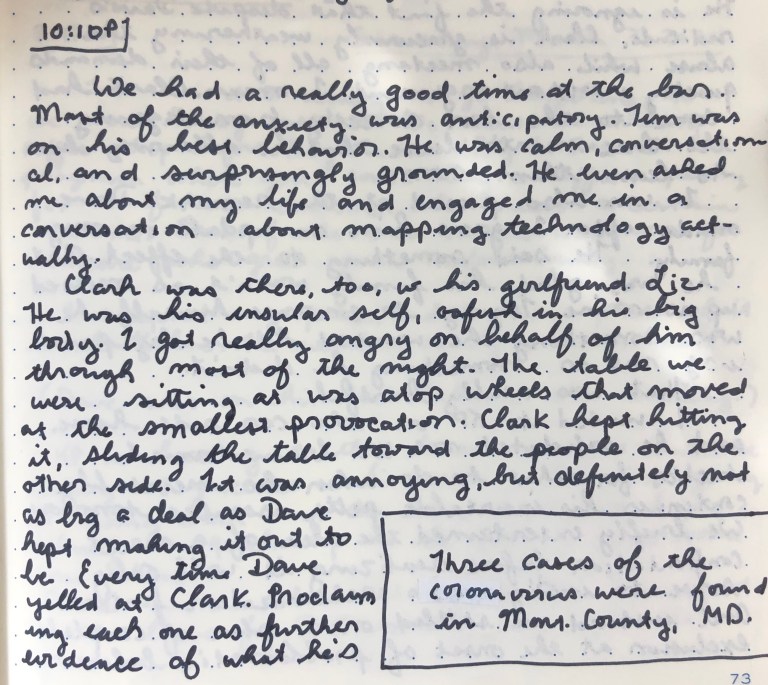 10:10P
We had a really good time at the bar.
Most of the anxiety was anticipatory. Tim was
on his best behavior. He was calm, conversation
al, and surprisingly grounded. He even asked
me about my life and engaged me in a
conversation about mapping technology act-
ually.
Clark was there, too, w his girlfriend Liz
He was his insular self, in his big
body. I got really angry on behalf of him
through most of the night. The table we
were sitting at was atop wheels that moved
at the smallest provocation. Clark kept hitting
it, sliding the table toward the people on the
other side. It was annoying, but definitely not
as big a deal as Dave
kept making it out to
be Every time Dave
yelled at Clark. Proclaim
ing each one as further
evidence of what he's
Three cases of the
coronavirus were found
in Mont. County, MD.
73